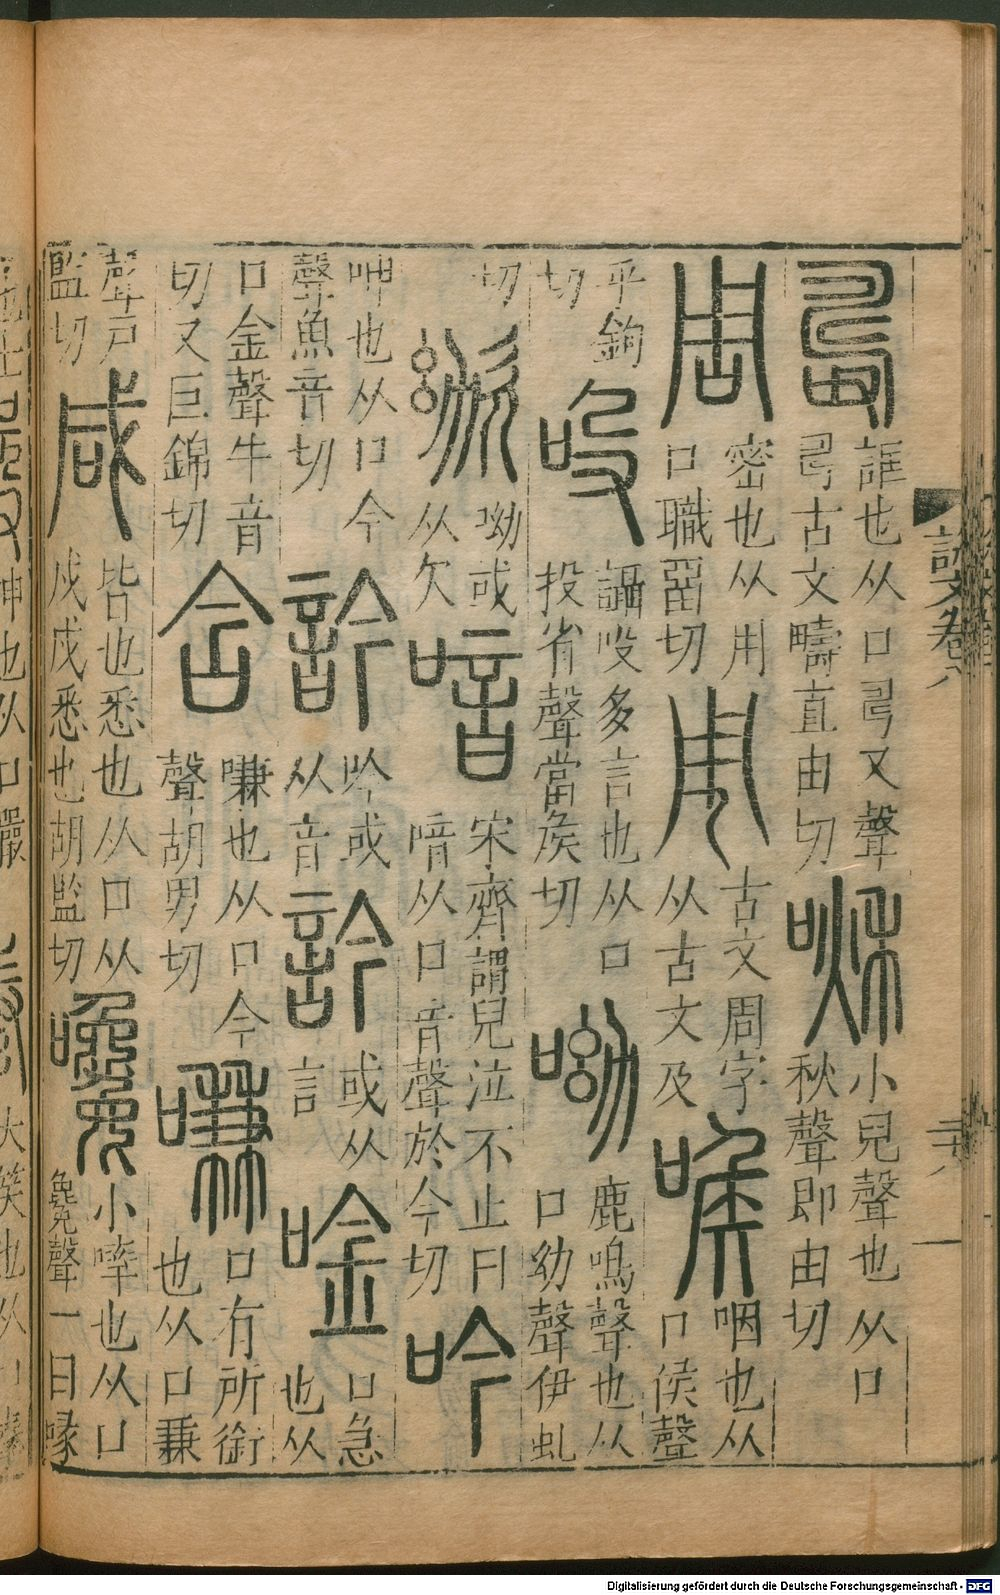 說文卷八
二十八
𠷎
誰也从口𠃬又聲
𠃬古文疇直由切
啾
小兒聲也从口
秋聲即由切
周
密也从用
口職畱切
𠄗
古文周字
从古文及
喉
咽也从
口侯聲
乎鉤
切
吺
讘吺多言也从口
投省聲當矦切
呦
鹿鳴聲也从
口幼聲伊虬
切
㳺
呦或
从欠
喑
宋齊謂兒泣不止曰
喑从口音聲於今切
吟
呻也从口今
聲魚音切
訡
吟或
从音
訡
或从
言
唫
口急
也从
口金聲牛音
切又巨錦切
含
嗛也从口今
聲胡男切
嗛
口有所銜
也从口兼
聲戶
監切
咸
皆也悉也从口从
戌戌悉也胡監切
嚵
小啐也从口
毚聲一曰喙
Digitalisierung gefördert durch die Deutsche Forschungsgemeinschaft - DFG